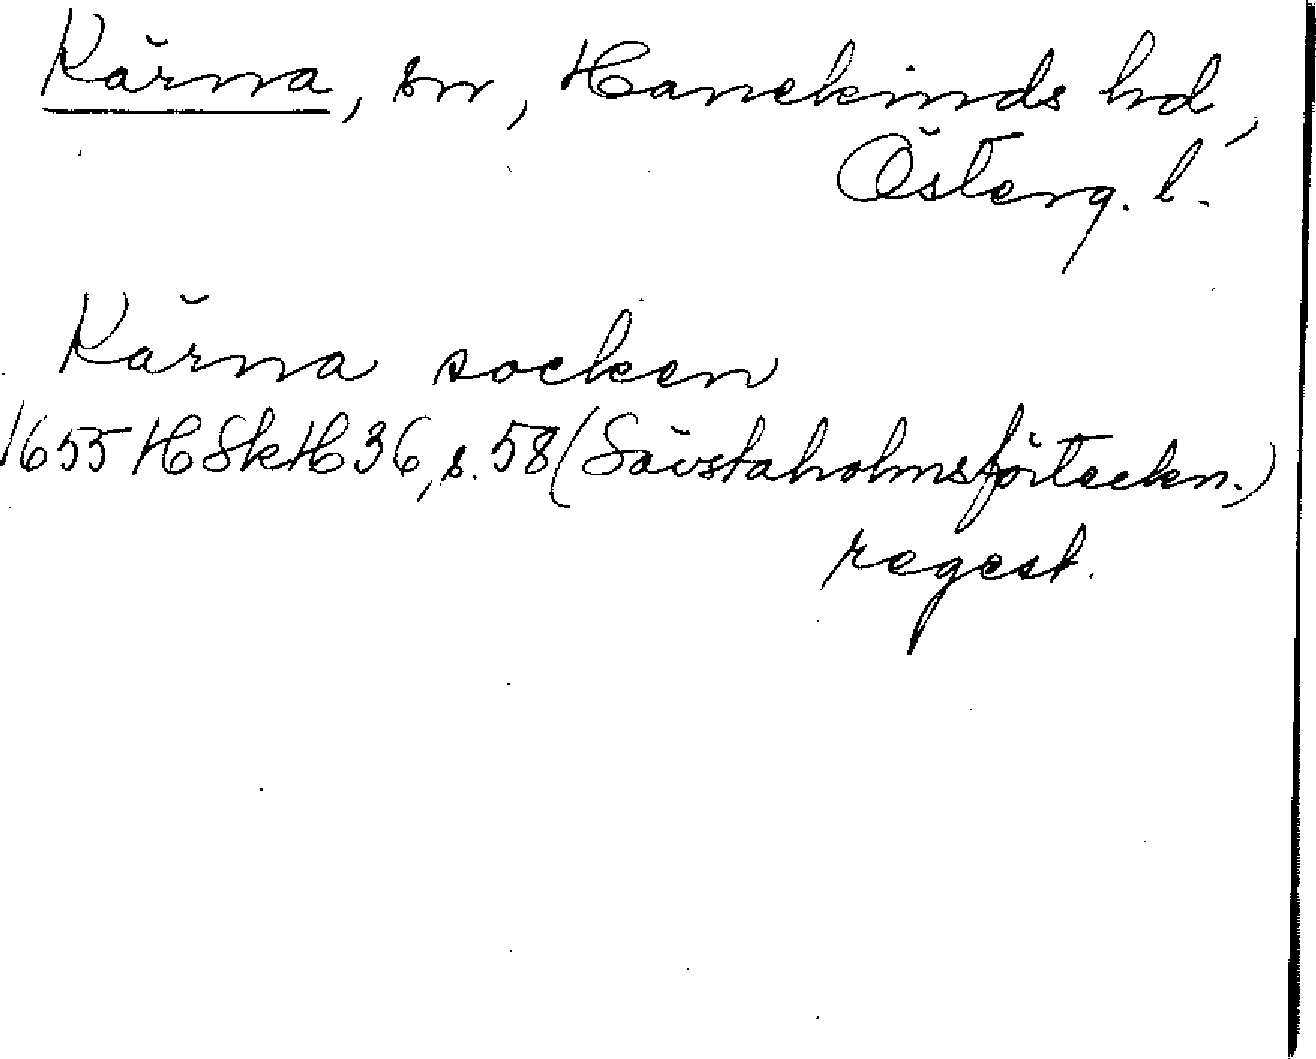 Kärna, sn, Hanekinds hd,
Österg. l.
Kärna socken
1655 HSkH 36, s. 58 (Sävstaholmsförteckn.)
regest.